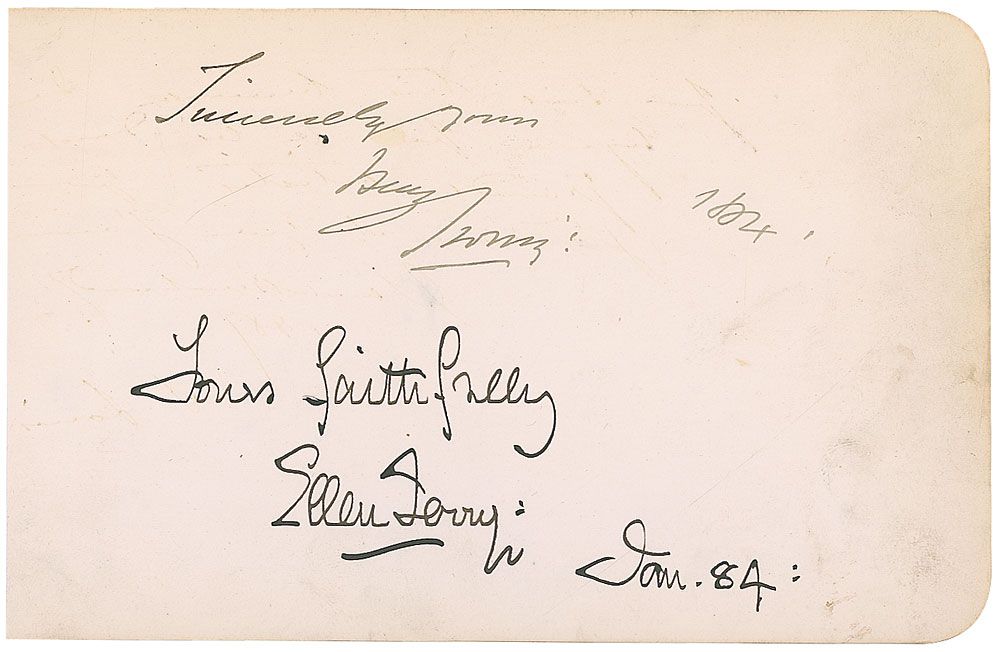 Sincerely Yours
Henry
Irving: 1884.
Yours Faithfully
Ellen Terry:
Jan. 84: